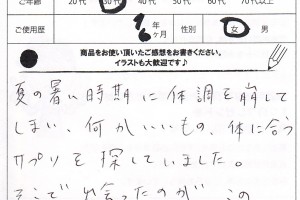 ご年齢 20代 30代 40代 50代 60代 70代以上
ご使用歴 1年 6ヶ月 性別 女・男
商品をお使い頂いたご感想をお書きください。
イラストも大歓迎です♪
夏の暑い時期に体調を崩して
しまい、何かいいもの、体に合う
サプリを探していました。
そこで出会ったのが、この